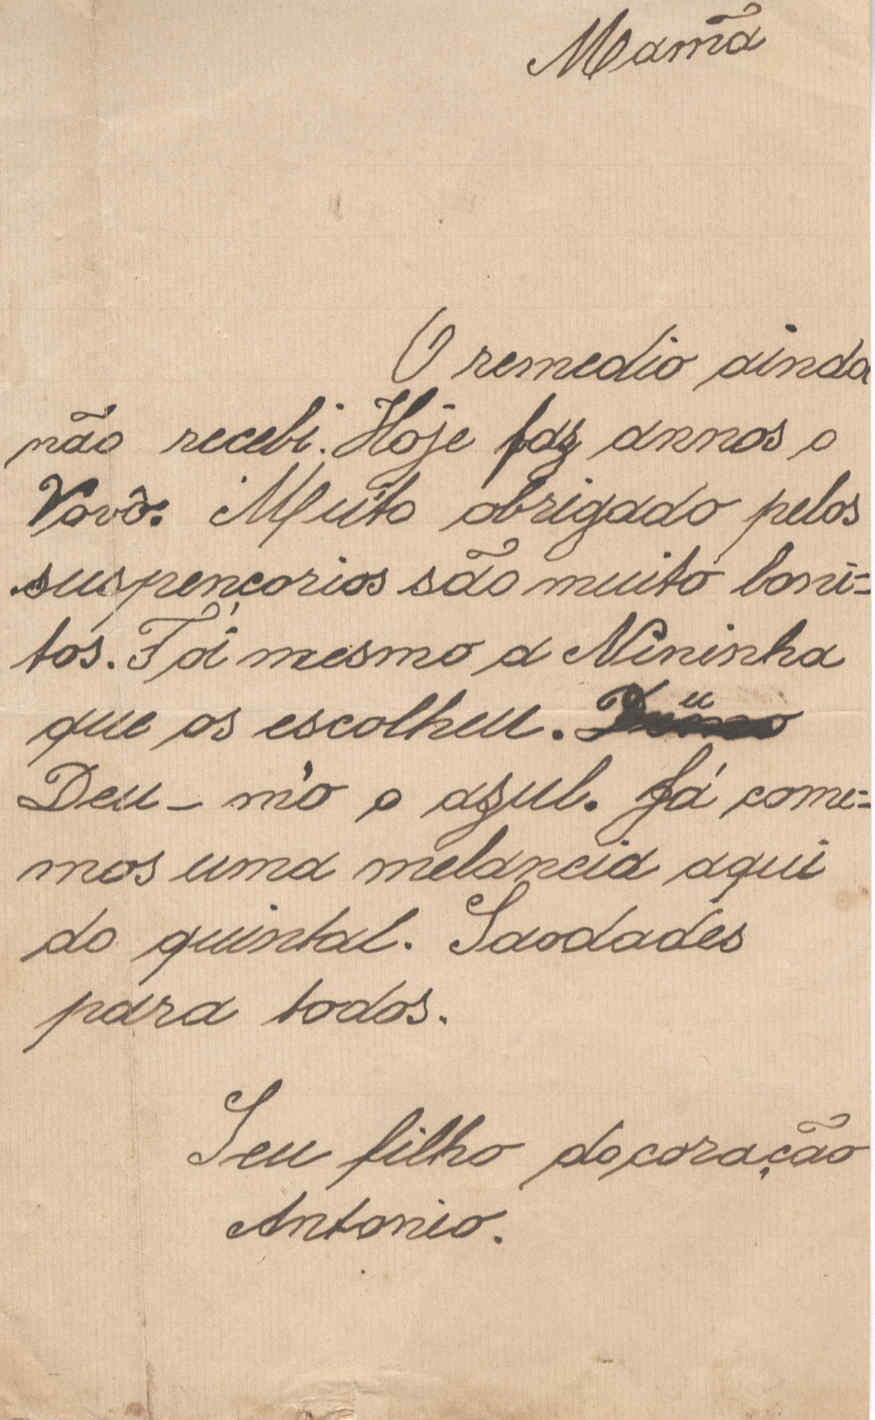 Mamã
O remedio ainda
não recebi. Hoje faz annos o
Vovô. Muito obrigado pelos
suspençorios são muito boni=
tos. Foi mesmo a Nininha
que os escolheu.
Deu-m'o o azul. Já come=
mos uma melancia aqui
do quintal. Saodades
para todos.
Seu filho do coração
Antonio.